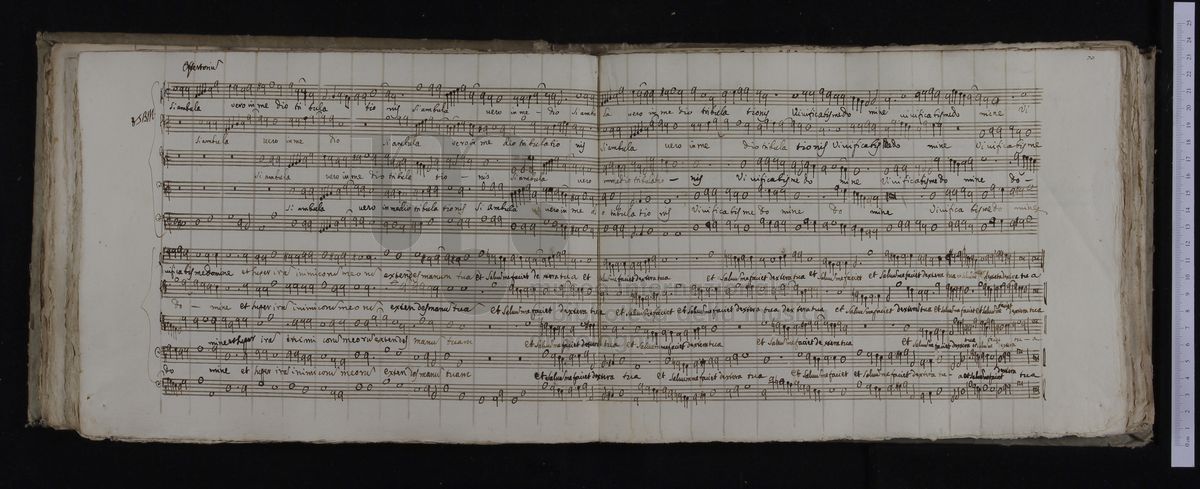 Offertoriu
Si ambula vero in me dio tri bula tio nis Si ambula vero in me dio Si ambu la vero in me dio tribula tionis Vivificabis me do mine vivificabis me do mine Vi
Si ambula vero in me dio Si ambula vero in me dio tribulatio nis Si ambula vero in me dio tribula tionis Vivificabis me do mine Vivificabis me
Si ambula vero in me dio tribula tio nis Si ambula vero in medio tribulatio nis Vivificabis me do mine Vivificabis me do mine do
Si ambula vero in medio tribula tionis Si Ambula vero in me dio tribula tio nis Vivificabis me do mine do mine Vivifica bis me do mine
vificabis me domine et super ira inimicoru meoru extendes manum tua et salvu me faciet dextera tua et salvu me faciet dextera tua et salvu me faciet dextera tua et salvu me faciet et salvu me faciet dextera tua
do mine et super ira inimicoru meoru extendes manu tua et salvu me faciet dextera tua et salvu me faciet et salvu me faciet dextera tua dextera tua et salvu me faciet dextera tua et salvu me faciet dextera tua
mine et super ira inimi coru meoru extendes manu tuam et salvu me faciet dextera tua et salvu me faciet dextera tua et salvu me faciet dextera tua et salvu me faciet dextera
do mine et super ira inimicoru meoru extendes manu tuam et salvu me faciet dextera tua et salvum me faciet dextera tua et salvu me faciet et salvu me faciet dextera tua et salvu me faciet dextera tua